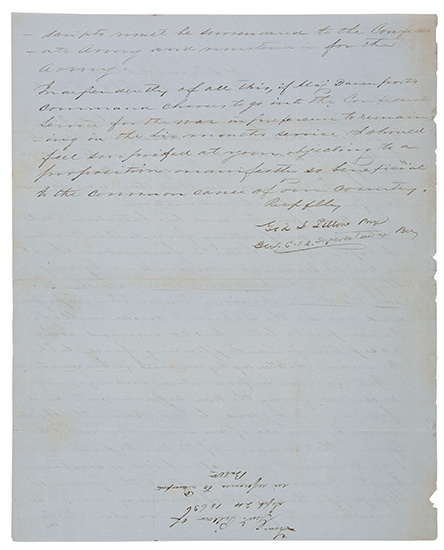 - scripts must be surrendered to the Confeder
- ate Army and mustered in for the
Army.
Independently of all this, if Maj Davenports
command chooses to go into the Confederate
Service for the war in preference to remain
ing in the six months service I should
feel surprised at your objecting to a
proposition manifestly so beneficial
to the common cause of our Country.
Respflly
Gid J Pillow
Genl. C.S.A.
From
Genl Pillow of
Sept 24
in reference to
Battn